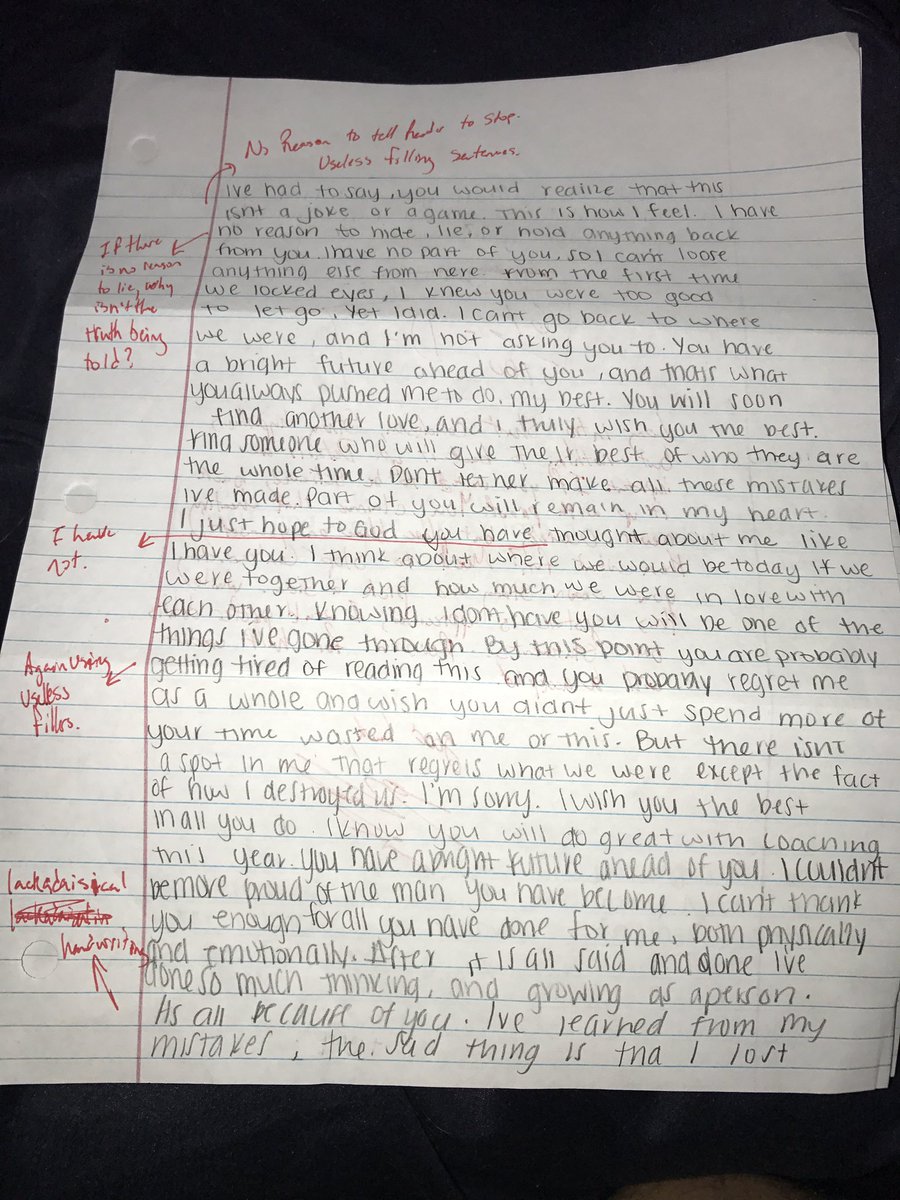 No Reason to tell Reader to stop.
Useless filling sentences.
ive had to say, you would realize that this
isnt a joke or a game. This is how I feel. I have
no reason to hide, lie, or hold anything back
from you. I have no part of you, so I can't loose
anything else from here. From the first time
we locked eyes, I knew you were too good
to let go, yet I did. I cant go back to where
we were, and I'm not asking you to. You have
a bright future ahead of you, and thats what
you always pushed me to do, my best. You will soon
find another love, and i truly wish you the best.
find someone who will give their best of who they are
the whole time. Dont let her make all these mistakes
ive made. Part of you will remain in my heart.
I just hope to God you have thought about me like
I have you. I think about where we would be today if we
were together and how much we were in love with
each other. Knowing I dont have you will be one of the
things i've gone through. By this point you are probably
getting tired of reading this and you probably regret me
as a whole and wish you didnt just spend more of
your time wasted on me or this. But there isnt
a spot in me that regrets what we were except the fact
of how I destroyed us. I'm sorry. I wish you the best
in all you do. I know you will do great with coaching
this year. You have a bright future ahead of you. I couldn't
be more proud of the man you have become. I can't thank
you enough for all you have done for me, both physically
and emotionally. After it is all said and done Ive
done so much thinking, and growing as a person.
Its all because of you. Ive learned from my
mistakes, the sad thing is tha I lost
If there
is no reason
to lie, why
isn't the
truth being
told?
I have
not.
Again using
useless
fillers.
lackadaisical
handwriting